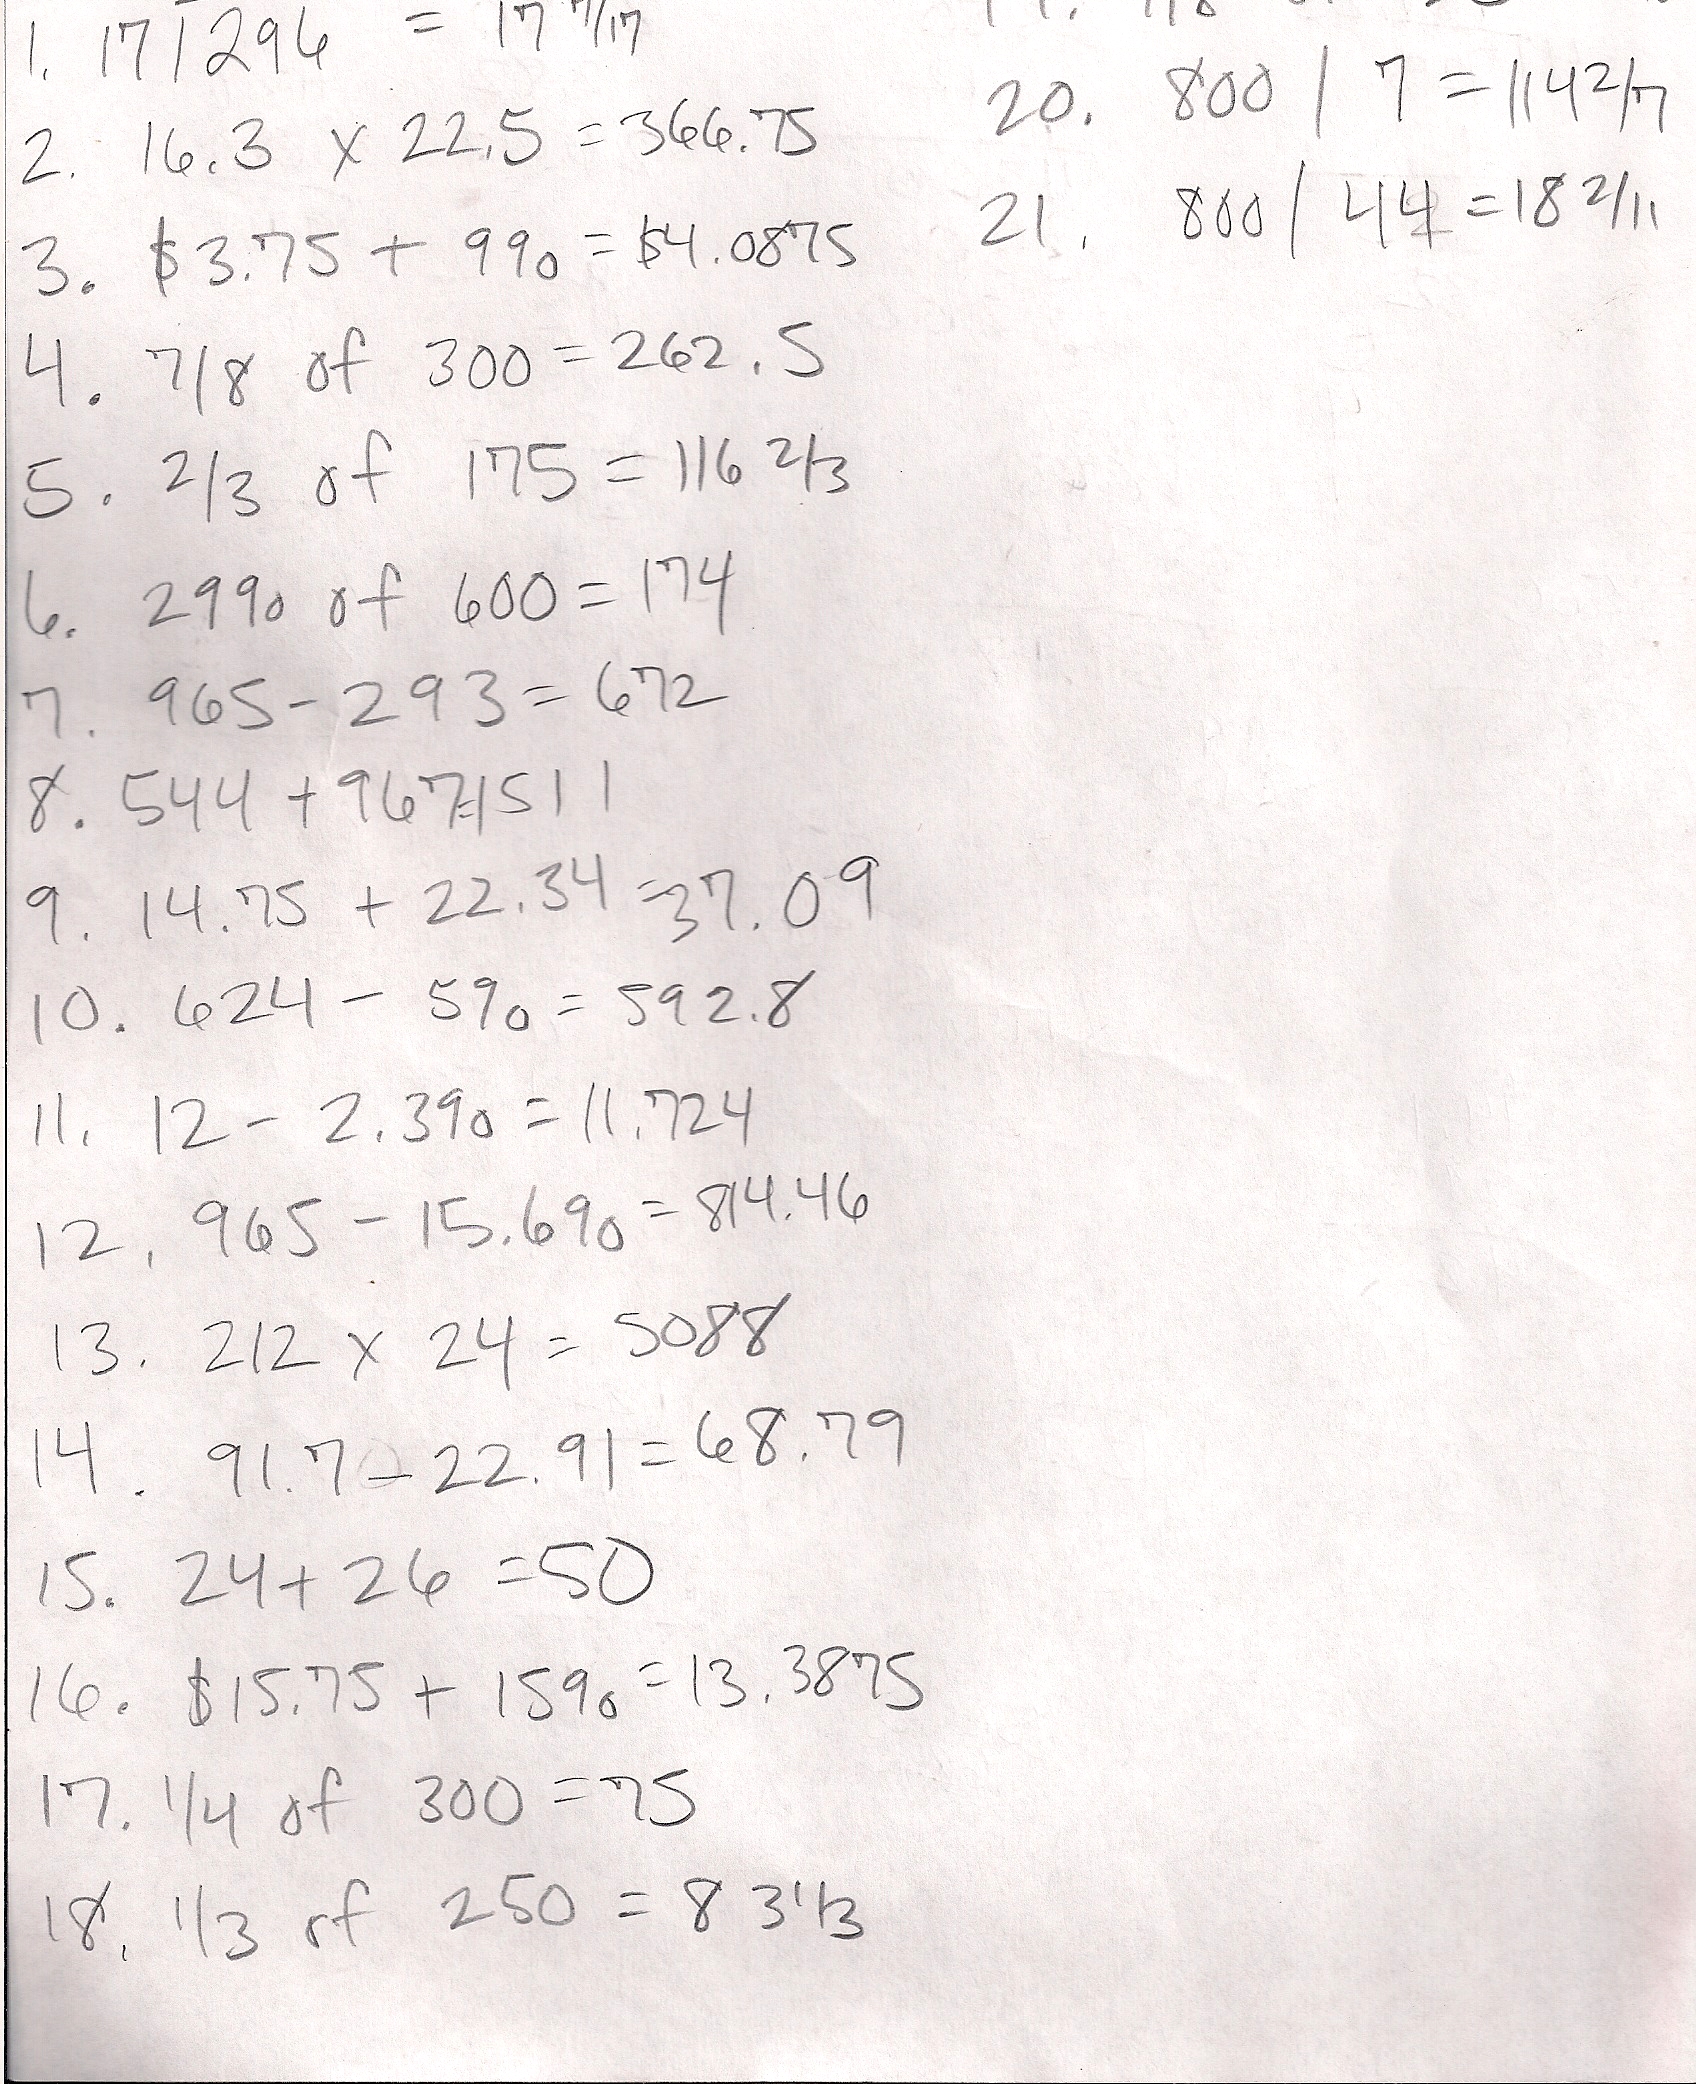 1. 17⟌296 = 17 7/17
2. 16.3 x 22.5 = 366.75
3. $3.75 + 9% = $4.0875
4. 7/8 of 300 = 262.5
5. 2/3 of 175 = 116 2/3
6. 29% of 600 = 174
7. 965 - 293 = 672
8. 544 + 967 = 1511
9. 14.75 + 22.34 = 37.09
10. 624 - 5% = 592.8
11. 12 - 2.3% = 11.724
12. 965 - 15.6% = 814.46
13. 212 x 24 = 5088
14. 91.7 - 22.91 = 68.79
15. 24 + 26 = 50
16. $15.75 + 15% = 13.3875
17. 1/4 of 300 = 75
18. 1/3 of 250 = 83 1/3
20. 800 / 7 = 114 2/7
21. 800 / 44 = 18 2/11